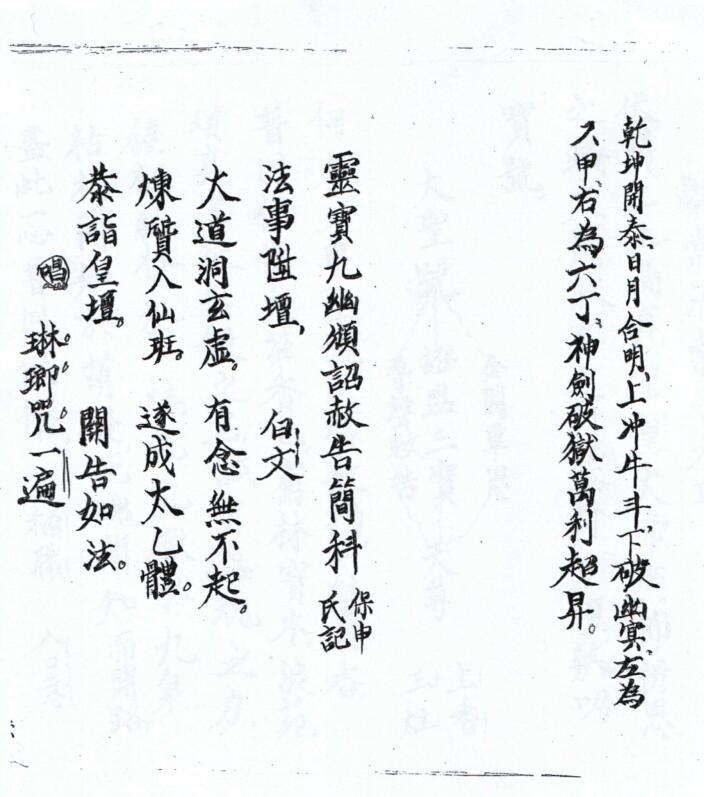 乾坤開泰、日月合明、上冲牛斗、下破幽冥、左為
六甲、右為六丁、神劍破獄萬利超昇。
靈寶九幽頒詔赦告簡科 保申氏記
法事陞壇、 白文
大道洞玄虛。有念無不起。
煉質入仙班。遂成太乙體。
恭詣皇壇。 開告如法。
唱 琳瑯咒一遍